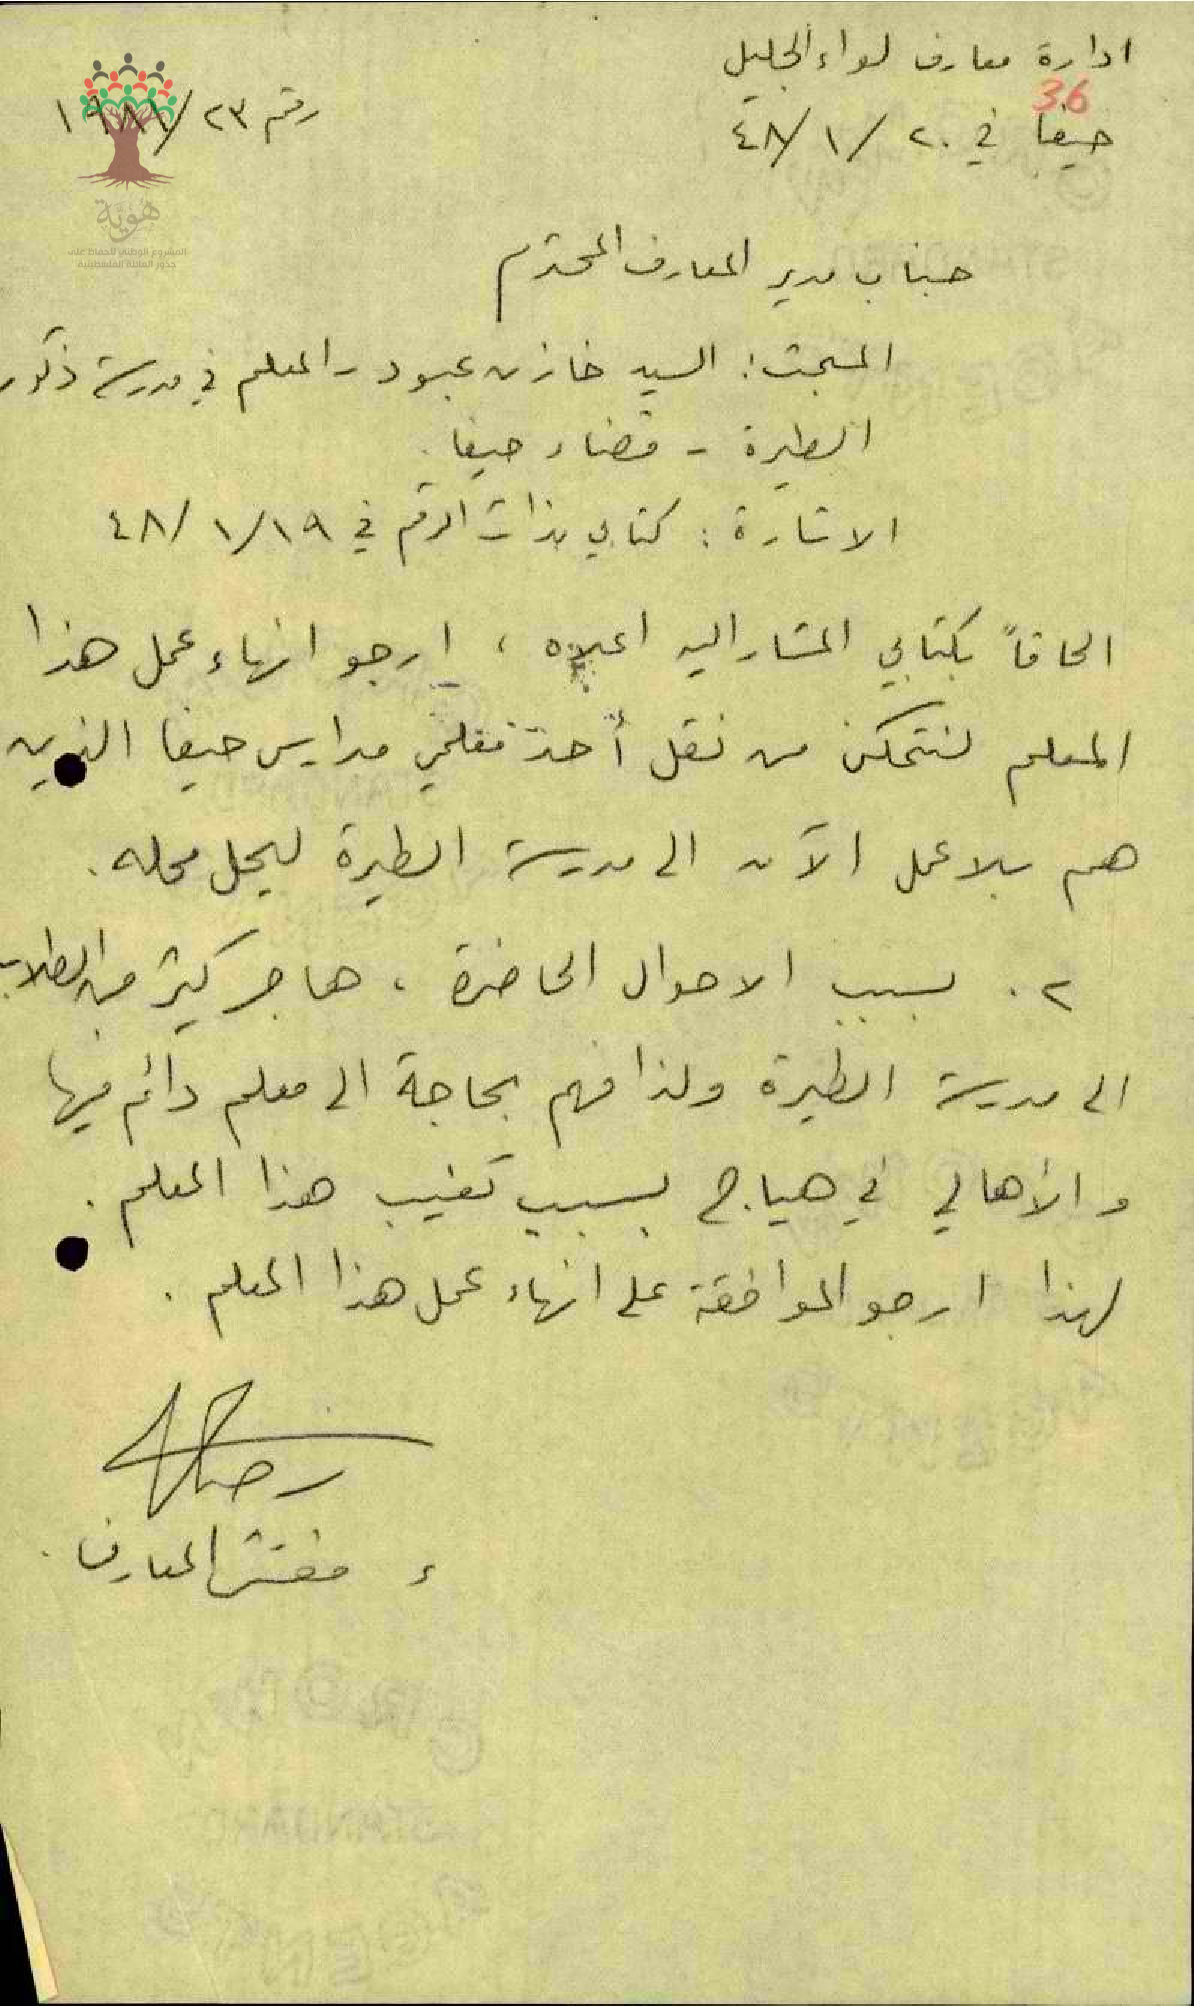 ادارة معارف لواء الجليل
36
حيفا في ٢٠/١/٤٨
رقم ٢٣/
هوية
المشروع الوطني للحفاظ على
جذور العائلة الفلسطينية
جناب مدير المعارف المحترم
المبحث: السيد خازن عبود - المعلم في مدرسة ذكور
الطيرة - قضاء حيفا.
الاشارة: كتابي بذات الرقم في ١٩/١/٤٨
الحاقاً بكتابي المشار اليه اعلاه، ارجو انهاء عمل هذا
المعلم لنتمكن من نقل أحد معلمي مدارس حيفا الذين
هم بلا عمل الآن الى مدرسة الطيرة ليحل محله.
٢. بسبب الاحوال الحاضرة، هاجر كثير من الطلاب
الى مدرسة الطيرة ولذا فهم بحاجة الى معلم دائم فيها
والأهالي في هياج بسبب تغيب هذا المعلم.
لهذا ارجو الموافقة على انهاء عمل هذا المعلم.
ء مفتش المعارف.